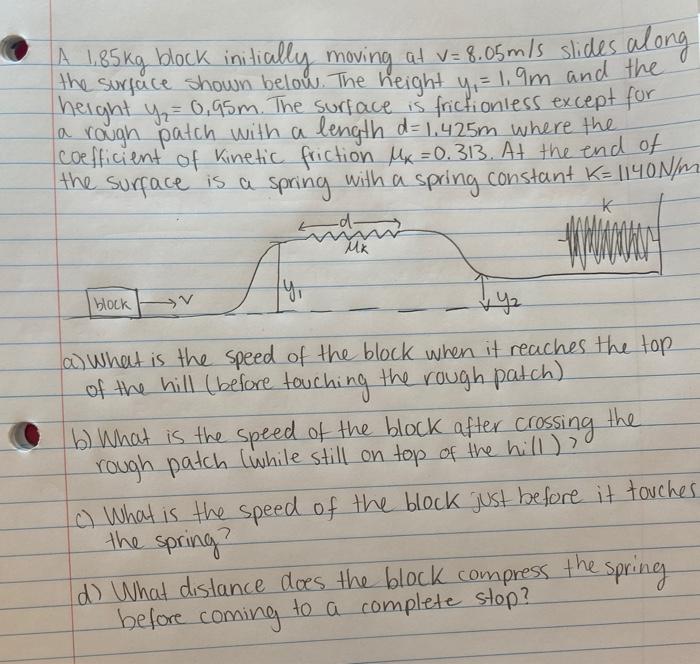 A 1.85kg block initially moving at v= 8.05m/s slides along
the surface shown below. The height y₁= 1.9m and the
height y₂= 0.95m. The surface is frictionless except for
a rough patch with a length d= 1.425m where the
coefficient of kinetic friction μₖ =0.313. At the end of
the surface is a spring with a spring constant K= 1140N/m
K
d
μₖ
y₁
block v
y₂
a) What is the speed of the block when it reaches the top
of the hill (before touching the rough patch)
b) What is the speed of the block after crossing the
rough patch (while still on top of the hill)?
c) What is the speed of the block just before it touches
the spring?
d) What distance does the block compress the spring
before coming to a complete stop?